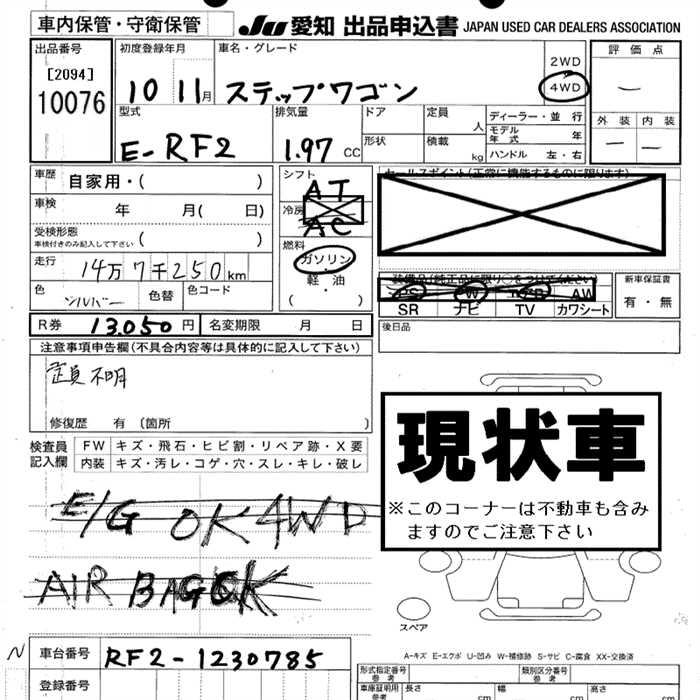 車内保管・守衛保管
JU 愛知 出品申込書 JAPAN USED CAR DEALERS ASSOCIATION
出品番号
[2094]
10076
初度登録年月
10 11月
車名・グレード
ステップワゴン
2WD
4WD
評価点
—
外装 内装
— —
型式
E-RF2
排気量
1.97 CC
ドア
形状
定員 人
積載 kg
ディーラー・並行
モデル年式 年
ハンドル 左・右
車歴 自家用・( )
車検 年 月( 日)
受検形態
車検付きのみ記入して下さい ( )
走行 14万7千250km
色 シルバー 色替 色コード
シフト
AT
冷房
AC
燃料
ガソリン・
軽・油
( )
セールスポイント(正常に機能するものに限ります)
装備品(純正品に限り○をつけてください)
PS PW AW
SR ナビ TV カワシート
新車保証書
有・無
R券 13,050円 名変期限 月 日
後日品
注意事項申告欄(不具合内容等は具体的に記入して下さい)
定員不明
修復歴 有 (箇所 )
検査員記入欄
FW キズ・飛石・ヒビ割・リペア跡・X要
内装 キズ・汚レ・コゲ・穴・スレ・キレ・破レ
E/G OK 4WD
AIR BAG OK
現状車
※このコーナーは不動車も含み
ますのでご注意下さい
スペア
A-キズ E-エクボ U-凹み W-補修跡 S-サビ C-腐食 XX-交換済
N 車台番号 RF2-1230785
登録番号
形式指定番号 参考
類別区分番号 参考
車庫証明用 参考
長さ cm
幅 cm
高さ cm